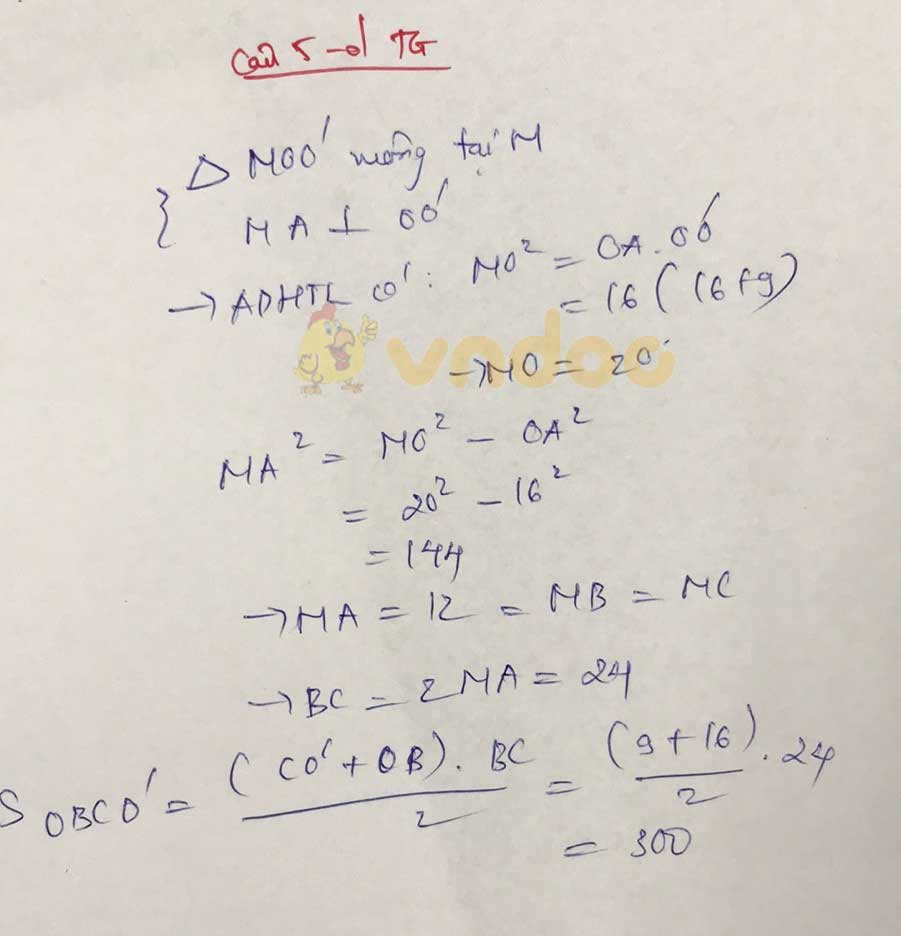 Câu 5-d TG
Δ MOO' vuông tại M
MA ⊥ OO'
→ ADHTL có: MO² = OA.OO'
= 16 (16+9)
vndoc
→ MO = 20
MA² = MO² - OA²
= 20² - 16²
= 144
→ MA = 12 = MB = MC
→ BC = 2MA = 24
S OBCO' = (CO' + OB). BC / 2 = (9+16) / 2 . 24
= 300